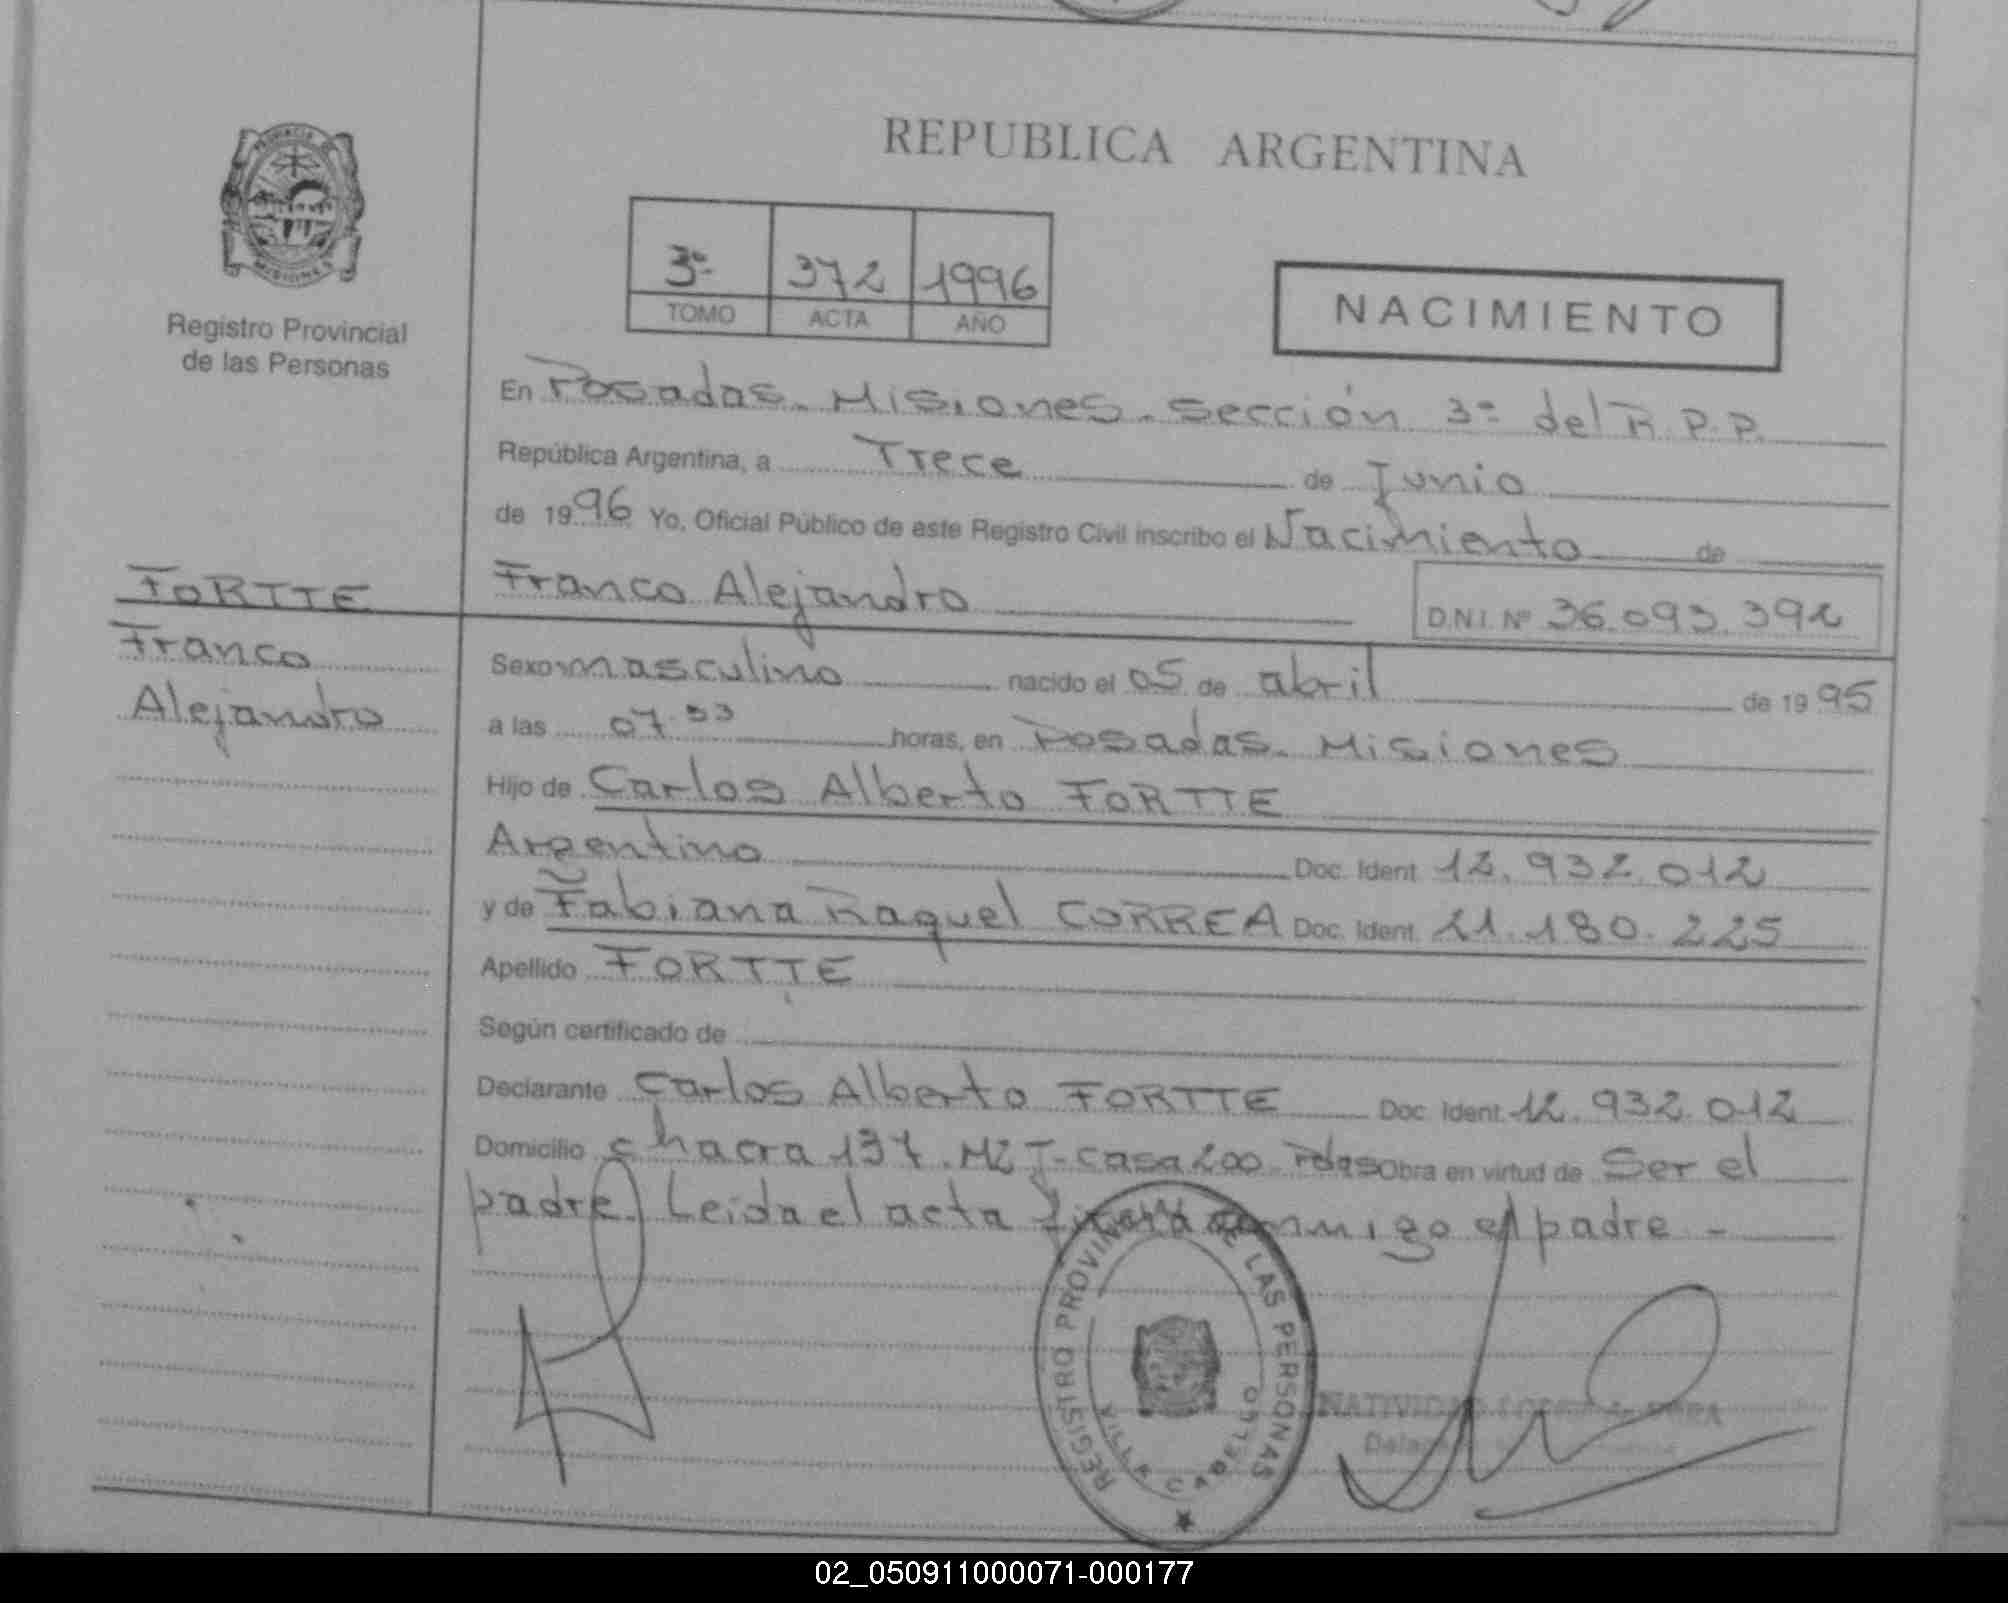 REPUBLICA ARGENTINA
PROVINCIA DE
MISIONES
Registro Provincial
de las Personas
3º 372 1996
TOMO ACTA AÑO
NACIMIENTO
En Posadas. Misiones. Sección 3º del R.P.P.
República Argentina, a Trece de Junio
de 1996 Yo, Oficial Público de este Registro Civil inscribo el Nacimiento de
Franco Alejandro D.N.I. Nº 36.093.392
FORTTE
Franco
Alejandro
Sexo masculino nacido el 05 de abril de 1995
a las 07.53 horas, en Posadas. Misiones
Hijo de Carlos Alberto FORTTE
Argentino Doc. Ident. 12.932.012
y de Fabiana Raquel CORREA Doc. Ident. 21.180.225
Apellido FORTTE
Según certificado de
Declarante Carlos Alberto FORTTE Doc. Ident. 12.932.012
Domicilio chacra 137. MZ I-casa 200. Pdas Obra en virtud de Ser el
padre. Leida el acta firma conmigo el padre -
REGISTRO PROVINCIAL DE LAS PERSONAS
VILLA CABELLO
NATIVIDAD
02_050911000071-000177